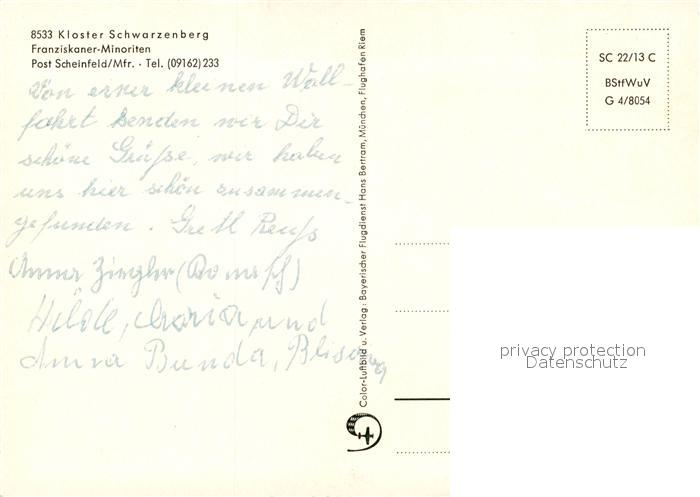 8533 Kloster Schwarzenberg
Franziskaner-Minoriten
Post Scheinfeld/Mfr. · Tel. (09162) 233
Von einer kleinen Wall-
fahrt senden wir Dir
schöne Grüße, wir haben
uns hier schön zusammen-
gefunden. Gretl
Anna Ziegler
Hilde, Maria, und
Anna Bunda,
Color-Luftbild u. Verlag: Bayerischer Flugdienst Hans Bertram, München, Flughafen Riem
SC 22/13 C
BStfWuV
G 4/8054
privacy protection
Datenschutz